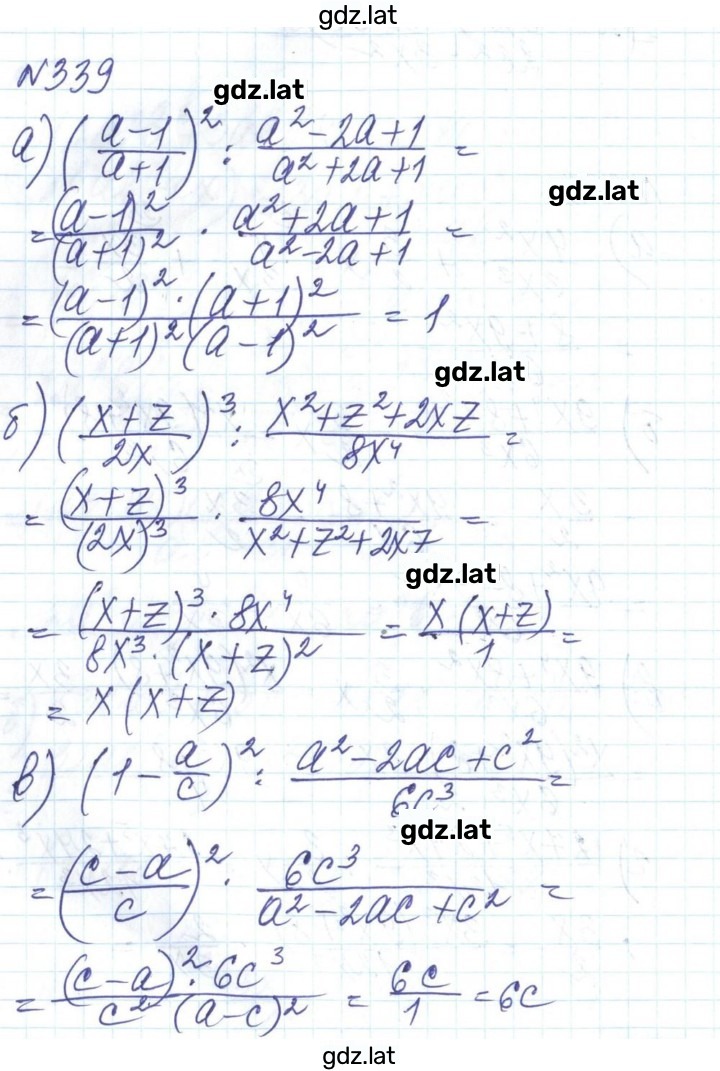 gdz.lat
№339
gdz.lat
а) ((a-1)/(a+1))² : (a²-2a+1)/(a²+2a+1) =
gdz.lat
= (a-1)²/(a+1)² · (a²+2a+1)/(a²-2a+1) =
= ((a-1)²·(a+1)²)/((a+1)²(a-1)²) = 1
gdz.lat
б) ((x+z)/(2x))³ : (x²+z²+2xz)/(8x⁴) =
= (x+z)³/(2x)³ · 8x⁴/(x²+z²+2xz) =
gdz.lat
= ((x+z)³·8x⁴)/(8x³·(x+z)²) = (x(x+z))/1 =
= x(x+z)
в) (1 - a/c)² : (a²-2ac+c²)/(6c³) =
gdz.lat
= ((c-a)/c)² · 6c³/(a²-2ac+c²) =
= ((c-a)²·6c³)/(c²·(a-c)²) = 6c/1 = 6c
gdz.lat